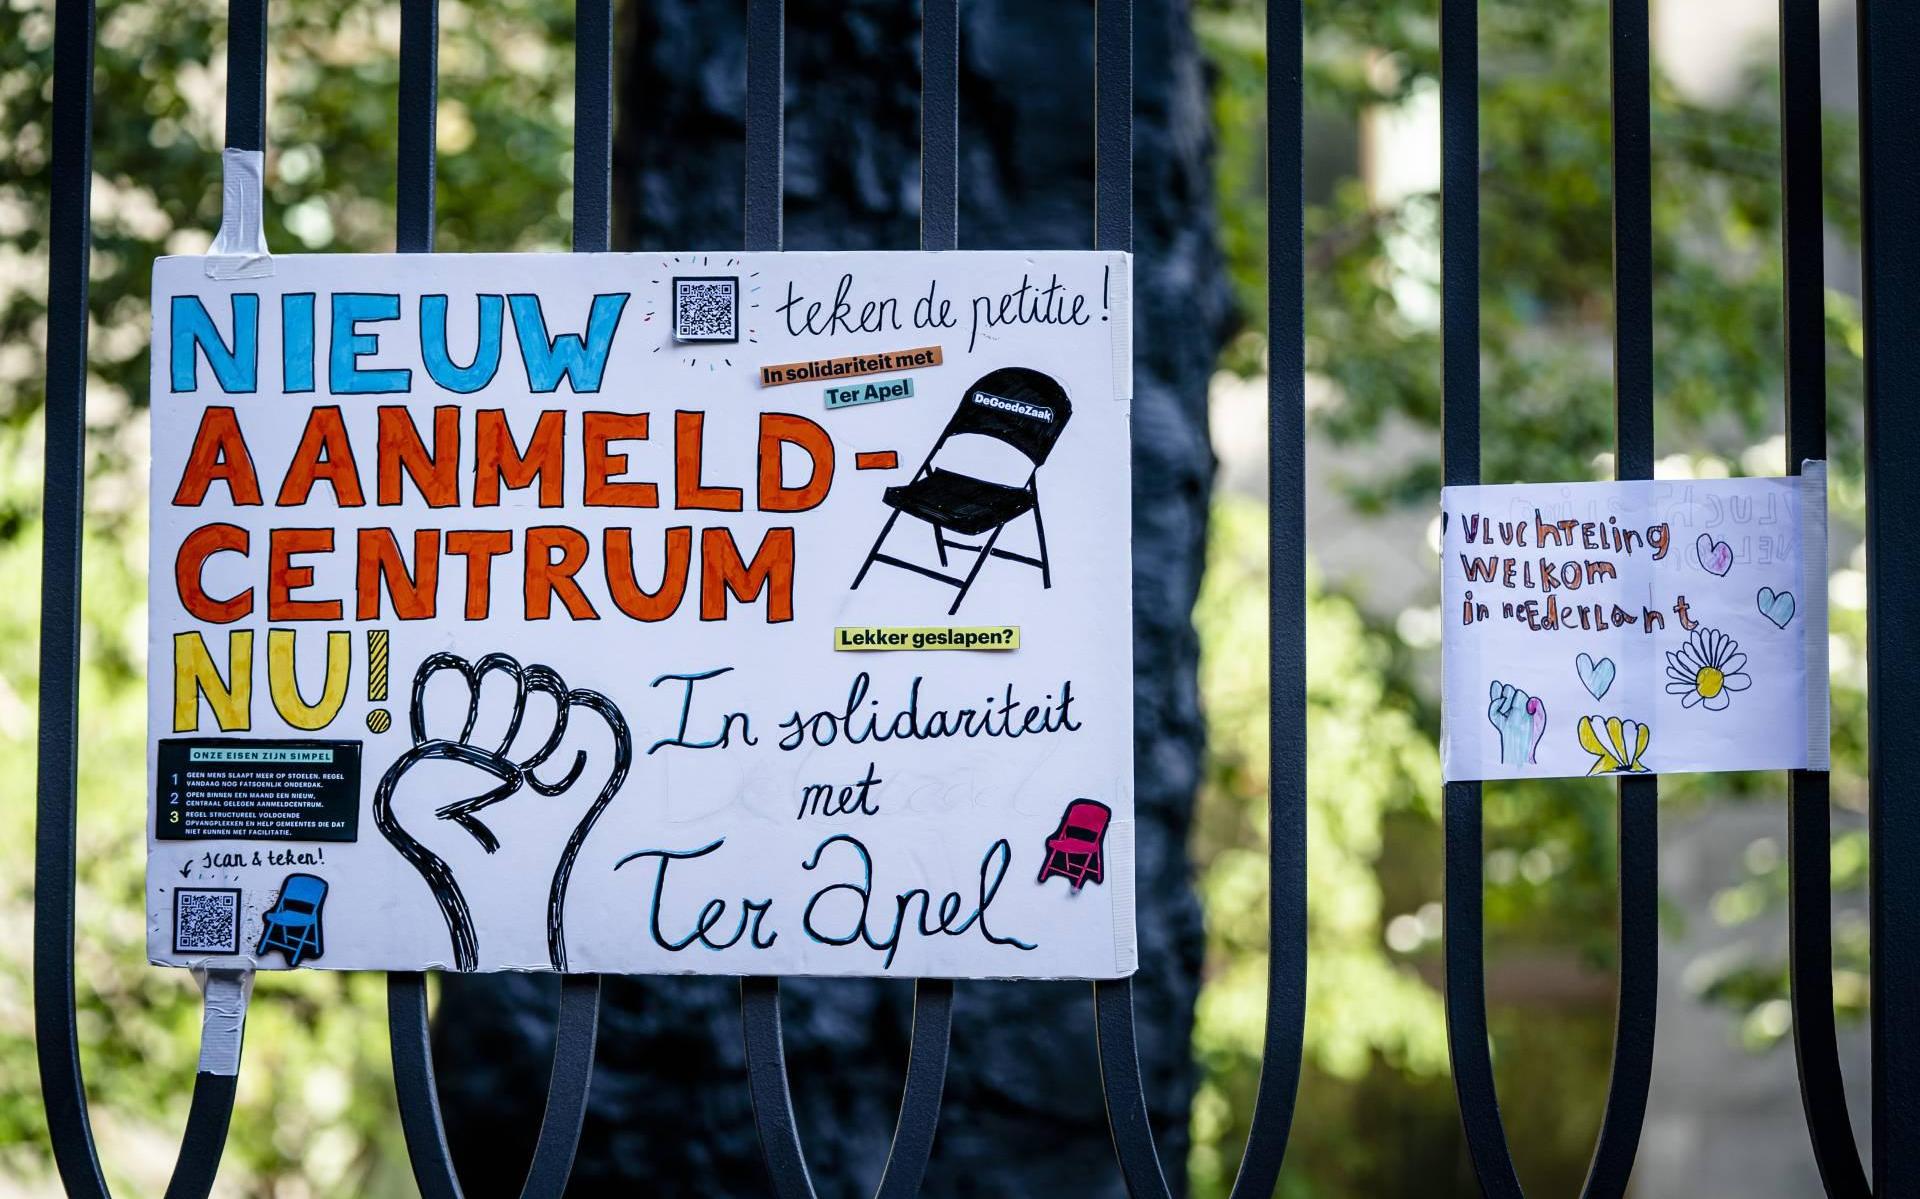 NIEUW
AANMELD-
CENTRUM
NU!
teken de petitie!
In solidariteit met
Ter Apel
DeGoedeZaak
Lekker geslapen?
In solidariteit
met
Ter Apel
ONZE EISEN ZIJN SIMPEL
1 GEEN MENS SLAAPT MEER OP STOELEN. REGEL
VANDAAG NOG FATSOENLIJK ONDERDAK.
2 OPEN BINNEN EEN MAAND EEN NIEUW,
CENTRAAL GELEGEN AANMELDCENTRUM.
3 REGEL STRUCTUREEL VOLDOENDE
OPVANGPLEKKEN EN HELP GEMEENTES DIE DAT
NIET KUNNEN MET FACILITATIE.
scan & teken!
VLUChTELing
WELKOM
in neEderlant